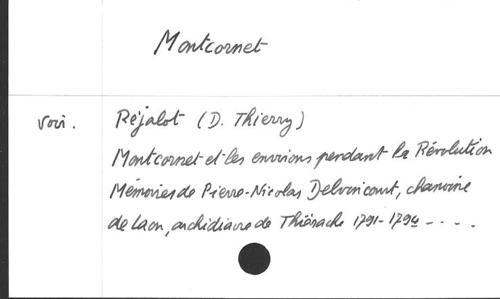 Montcornet
voir. Réjalot (D. Thierry)
Montcornet et les environs pendant la Révolution
Mémoires de Pierre-Nicolas Delvincourt, chanoine
de Laon, archidiacre de Thiérache 1791-1794 - . . .